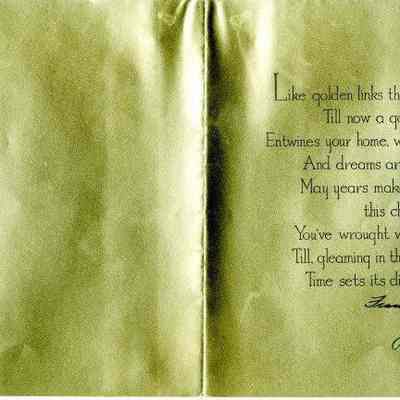 Like golden links th
Till now a go
Entwines your home, w
And dreams ar
May years mak
this ch
You've wrought w
Till, gleaming in th
Time sets its di